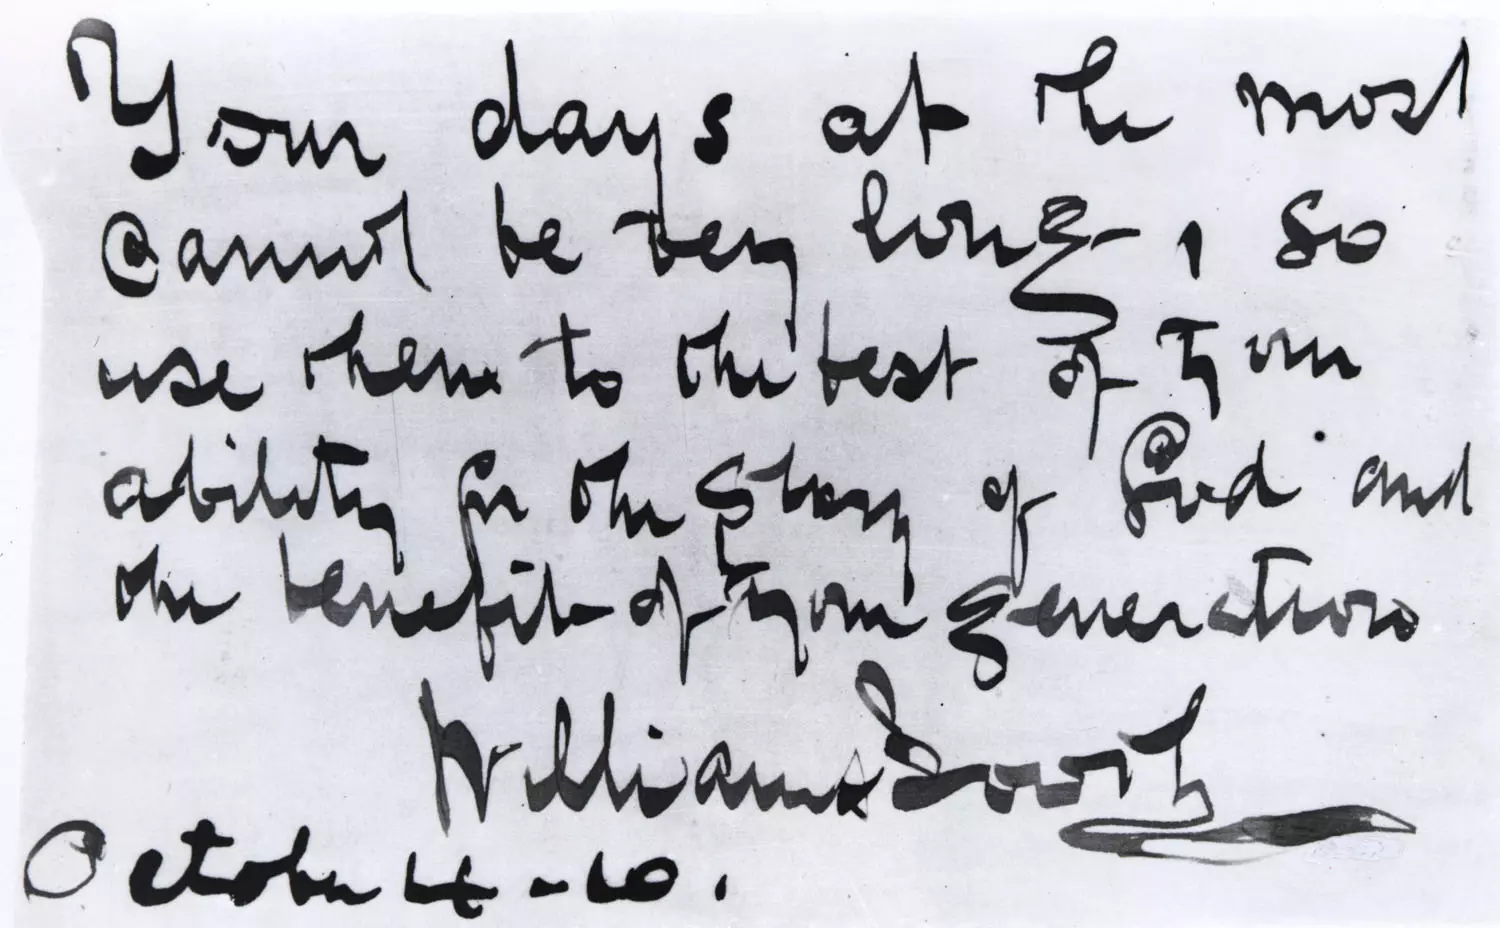 Your days at the most
cannot be very long, so
use them to the best of your
ability for the glory of God and
the benefit of your generation
William Booth
October 4-10.